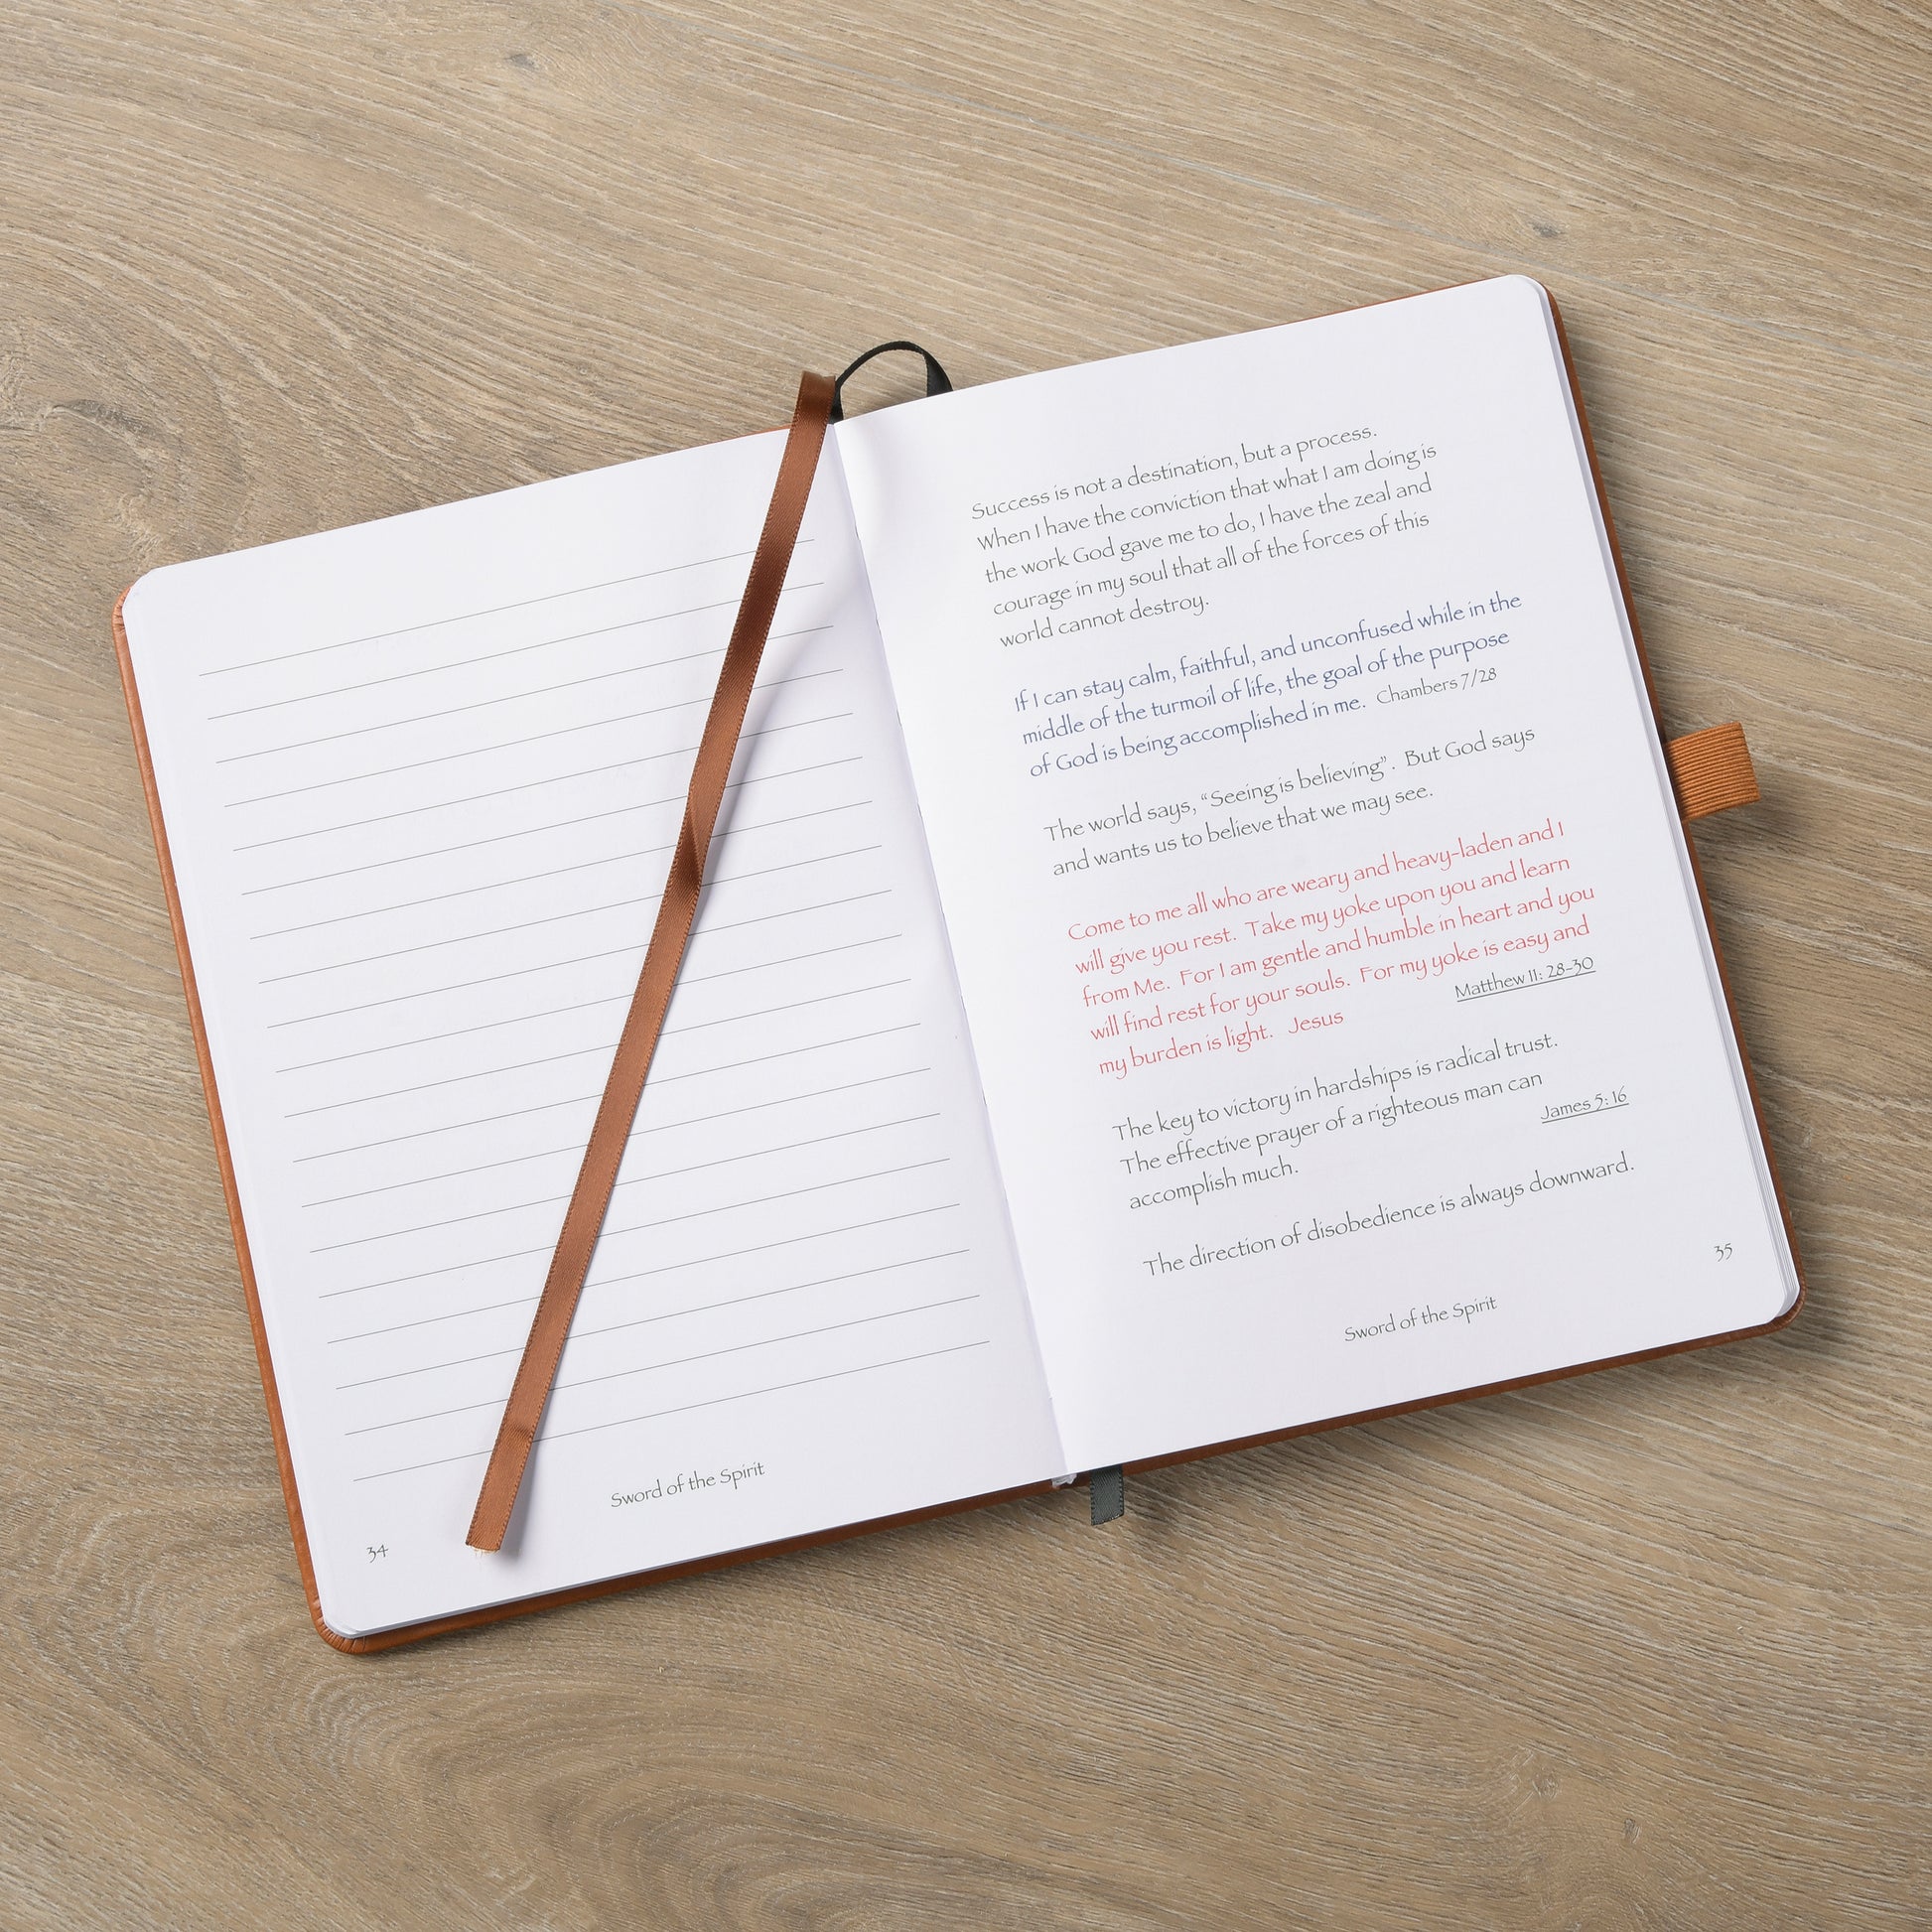 Sword of the Spirit
34
Success is not a destination, but a process.
When I have the conviction that what I am doing is
the work God gave me to do, I have the zeal and
courage in my soul that all of the forces of this
world cannot destroy.
If I can stay calm, faithful, and unconfused while in the
middle of the turmoil of life, the goal of the purpose
of God is being accomplished in me. Chambers 7/28
The world says, “Seeing is believing”. But God says
and wants us to believe that we may see.
Come to me all who are weary and heavy-laden and I
will give you rest. Take my yoke upon you and learn
from Me. For I am gentle and humble in heart and you
will find rest for your souls. For my yoke is easy and
my burden is light. Jesus
Matthew 11: 28-30
The key to victory in hardships is radical trust.
The effective prayer of a righteous man can
accomplish much.
James 5: 16
The direction of disobedience is always downward.
35
Sword of the Spirit